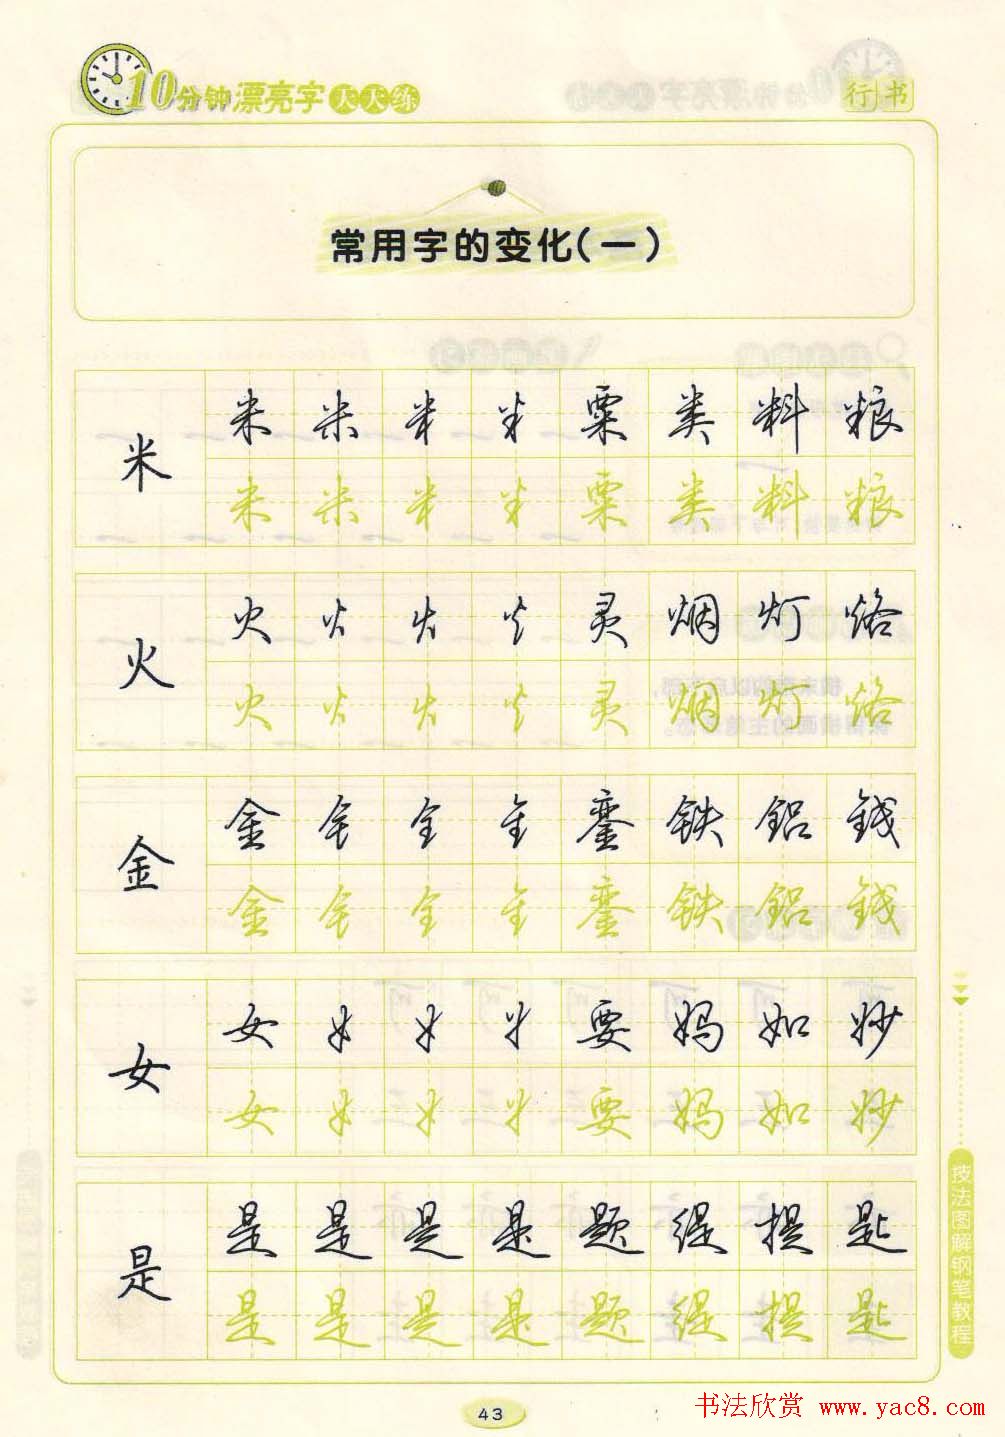 10分钟漂亮字天天练
行书
常用字的变化(一)
米 米 米 米 米 粟 类 料 粮
米 米 米 米 粟 类 料 粮
火 火 火 火 火 灵 烟 灯 烙
火 火 火 火 灵 烟 灯 烙
金 金 钅 钅 钅 銮 铁 铝 钱
金 钅 钅 钅 銮 铁 铝 钱
女 女 女 女 女 要 妈 如 妙
女 女 女 女 要 妈 如 妙
是 是 是 是 是 题 缇 提 匙
是 是 是 是 题 缇 提 匙
技法图解钢笔教程
43
书法欣赏 www.yac8.com